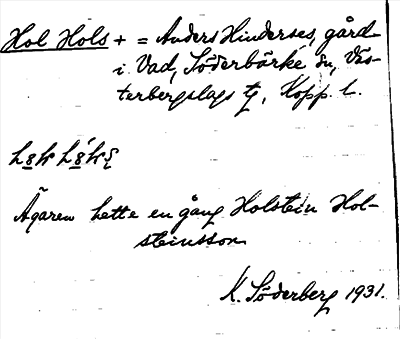 Hol Hols + = Anders Hinderses, gård
i Vad, Söderbärke sn, Väs-
terbergslags tg, Kopp. l.
Ägaren hette en gång Holstein Hol-
steinsson
K. Söderberg 1931.